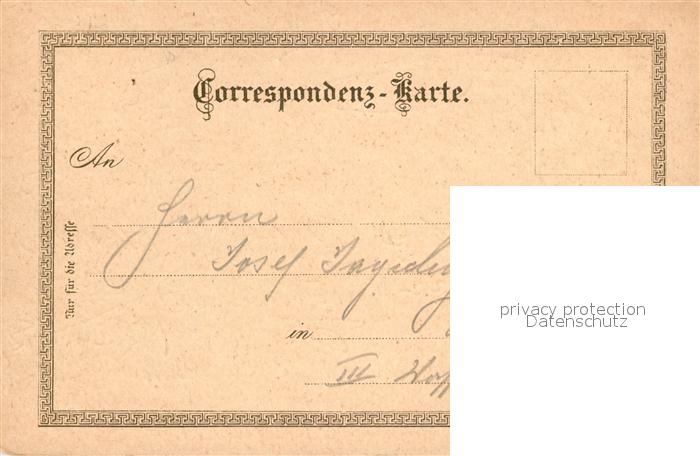 Correspondenz-Karte.
An
Nur für die Adresse
Herrn
Josef
in
III
privacy protection
Datenschutz